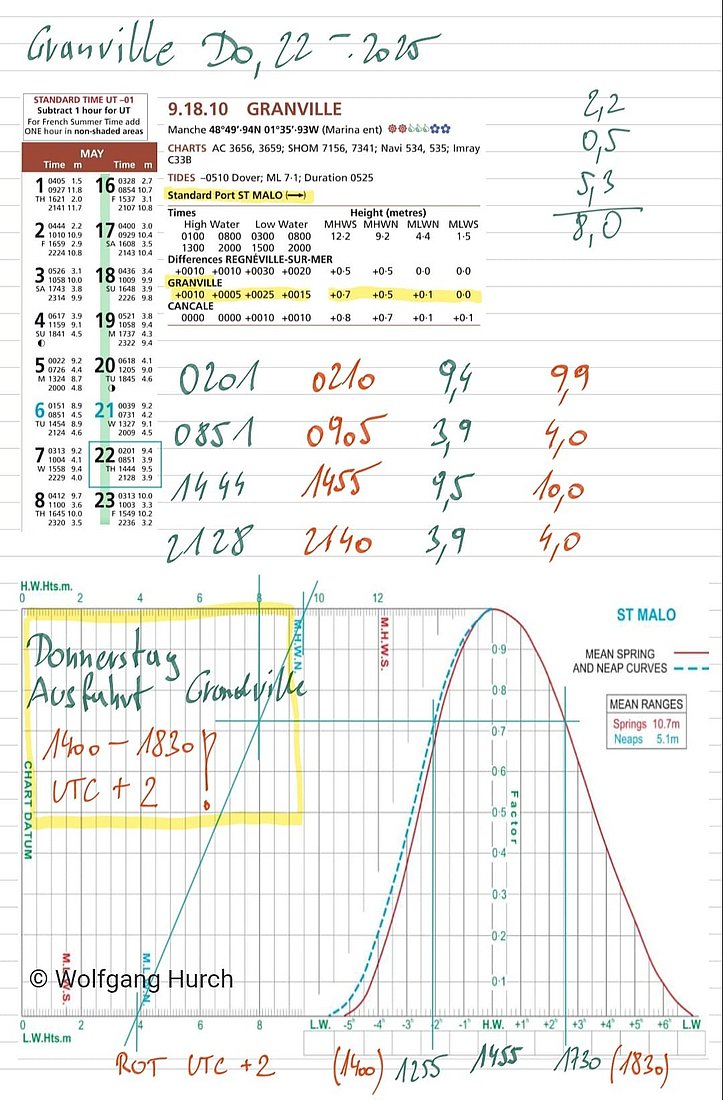 Granville Do, 22 – . 2025
2,2
0,5
5,3
8,0
STANDARD TIME UT –01
Subtract 1 hour for UT
For French Summer Time add
ONE hour in non-shaded areas
MAY
Time m Time m
1 0405 1.5
0927 11.8
TH 1621 2.0
2141 11.7
16 0328 2.7
0854 10.7
F 1537 3.1
2107 10.8
2 0444 2.2
1010 10.9
F 1659 2.9
2224 10.8
17 0400 3.0
0929 10.4
SA 1608 3.5
2143 10.4
3 0526 3.1
1058 10.0
SA 1743 3.8
2314 9.9
18 0436 3.4
1009 9.9
SU 1648 3.9
2226 9.8
4 0617 3.9
1159 9.1
SU 1841 4.5
19 0521 3.8
1058 9.4
M 1737 4.3
2322 9.4
5 0022 9.2
0726 4.4
M 1324 8.7
2000 4.8
20 0618 4.1
1205 9.0
TU 1845 4.6
6 0151 8.9
0851 4.5
TU 1454 8.9
2124 4.6
21 0039 9.2
0731 4.2
W 1327 9.1
2009 4.5
7 0313 9.2
1004 4.1
W 1558 9.4
2229 4.0
22 0201 9.4
0851 3.9
TH 1444 9.5
2128 3.9
8 0412 9.7
1100 3.6
TH 1645 10.0
2320 3.5
23 0313 10.0
1003 3.3
F 1549 10.2
2236 3.2
9.18.10 GRANVILLE
Manche 48°49'·94N 01°35'·93W (Marina ent)
CHARTS AC 3656, 3659; SHOM 7156, 7341; Navi 534, 535; Imray
C33B
TIDES –0510 Dover; ML 7·1; Duration 0525
Standard Port ST MALO (⟶)
Times Height (metres)
High Water Low Water MHWS MHWN MLWN MLWS
0100 0800 0300 0800 12·2 9·2 4·4 1·5
1300 2000 1500 2000
Differences REGNÉVILLE-SUR-MER
+0010 +0010 +0030 +0020 +0·5 +0·3 0·0 0·0
GRANVILLE
+0010 +0005 +0025 +0015 +0·7 +0·5 +0·1 0·0
CANCALE
0000 0000 +0010 +0010 +0·8 +0·7 +0·1 +0·1
0201 0210 9,4 9,9
0851 0905 3,9 4,0
1444 1455 9,5 10,0
2128 2140 3,9 4,0
H.W.Hts.m.
0 2 4 6 8 10 12
M.H.W.N.
M.H.W.S.
ST MALO
MEAN SPRING
AND NEAP CURVES
MEAN RANGES
Springs 10.7m
Neaps 5.1m
Donnerstag
Ausfahrt Grandville
1400 – 1830 !
UTC + 2
CHART DATUM
Factor
0·9
0·8
0·7
0·6
0·5
0·4
0·3
0·2
0·1
M.L.W.S.
M.L.W.N.
© Wolfgang Hurch
0 2 4 6 8
L.W.Hts.m
L.W. -5ʰ -4ʰ -3ʰ -2ʰ -1ʰ H.W. +1ʰ +2ʰ +3ʰ +4ʰ +5ʰ +6ʰ L.W
ROT UTC +2 (1400) 1255 1455 1730 (1830)